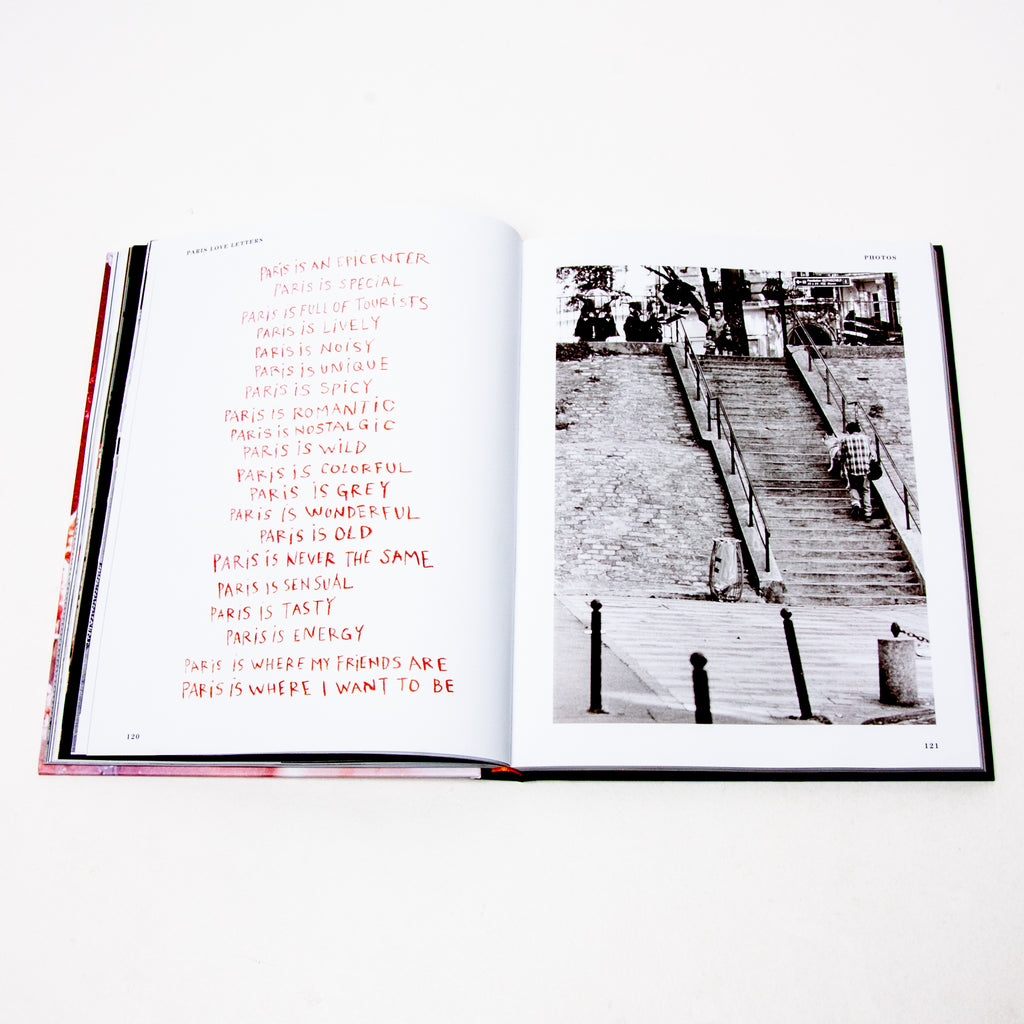 PARIS LOVE LETTERS
PARIS IS AN EPICENTER
PARIS IS SPECIAL
PARIS IS FULL OF TOURISTS
PARIS IS LIVELY
PARIS IS NOISY
PARIS IS UNIQUE
PARIS IS SPICY
PARIS IS ROMANTIC
PARIS IS NOSTALGIC
PARIS IS WILD
PARIS IS COLORFUL
PARIS IS GREY
PARIS IS WONDERFUL
PARIS IS OLD
PARIS IS NEVER THE SAME
PARIS IS SENSUAL
PARIS IS TASTY
PARIS IS ENERGY
PARIS IS WHERE MY FRIENDS ARE
PARIS IS WHERE I WANT TO BE
120
PHOTOS
121